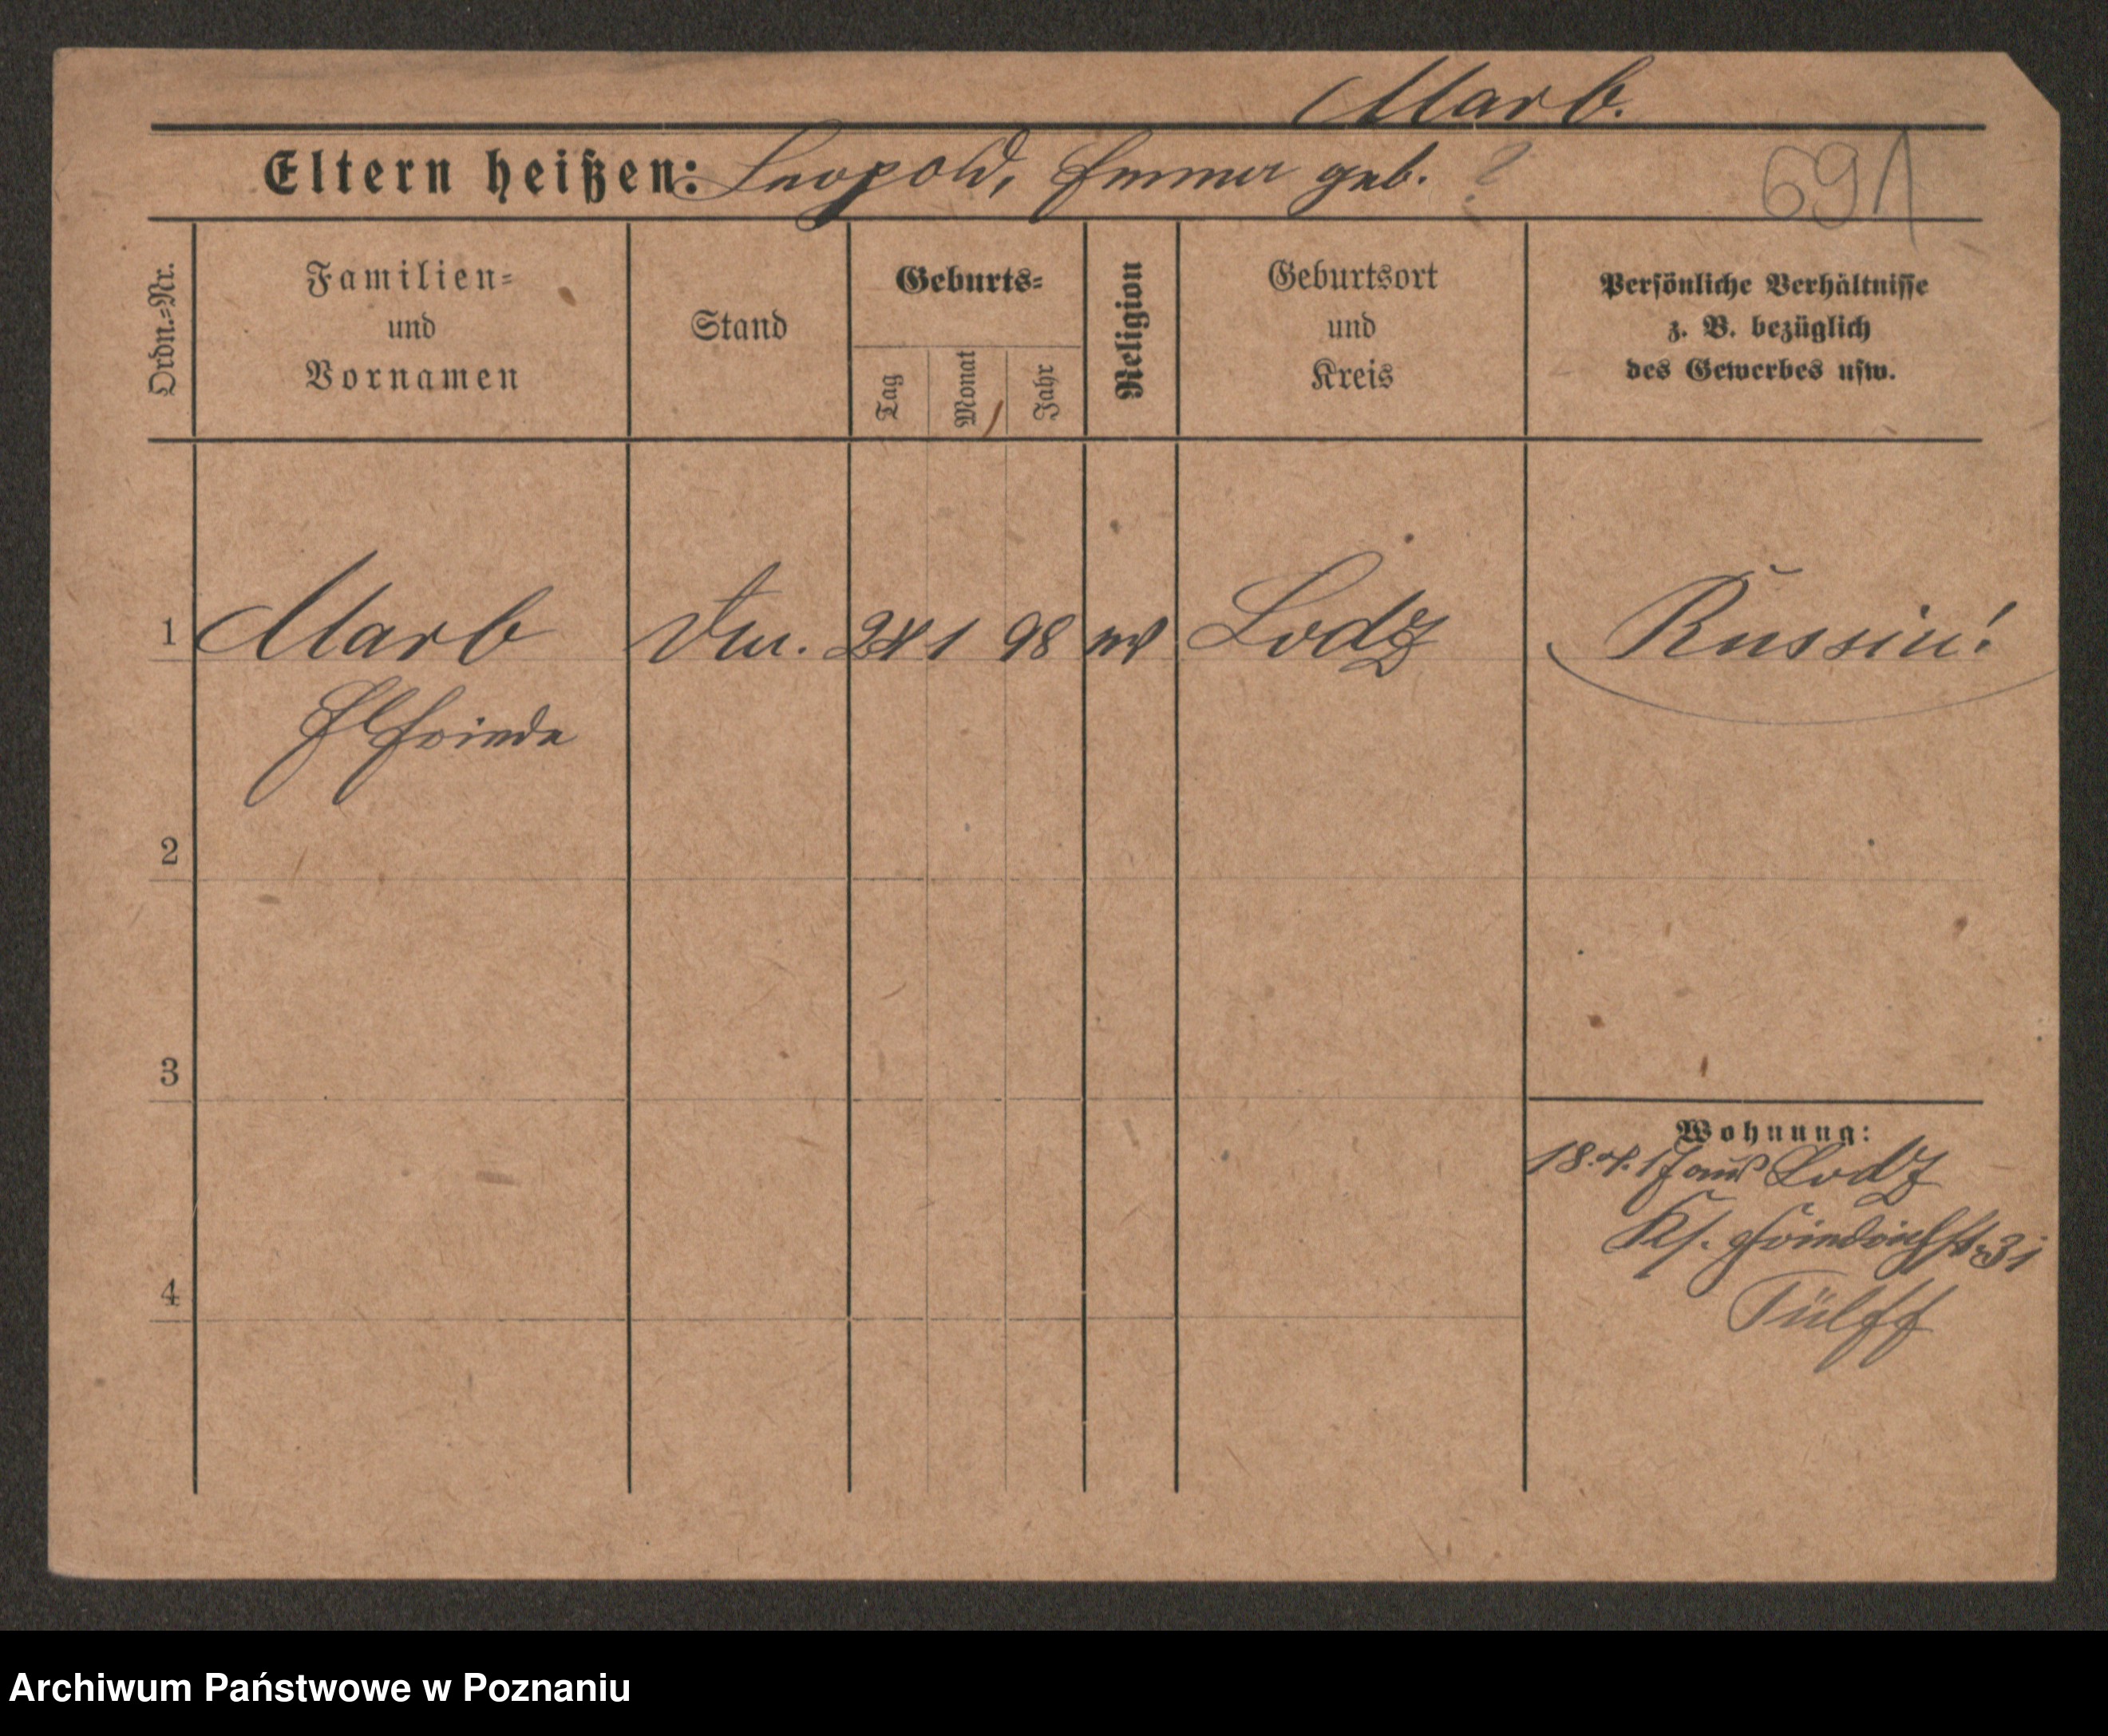 Marb.
Eltern heißen: Leopold, Emma geb. ?
691
Ordn.=Nr.
Familien=
und
Vornamen
Stand
Geburts=
Tag
Monat
Jahr
Religion
Geburtsort
und
Kreis
Persönliche Verhältnisse
z. B. bezüglich
des Gewerbes usw.
1 Marb 24 1 98 ev Lodz Russin!
Elfriede
2
3
4
Wohnung:
18.4.17 aus Lodz
Kl. Friedrichstr 31
Archiwum Państwowe w Poznaniu